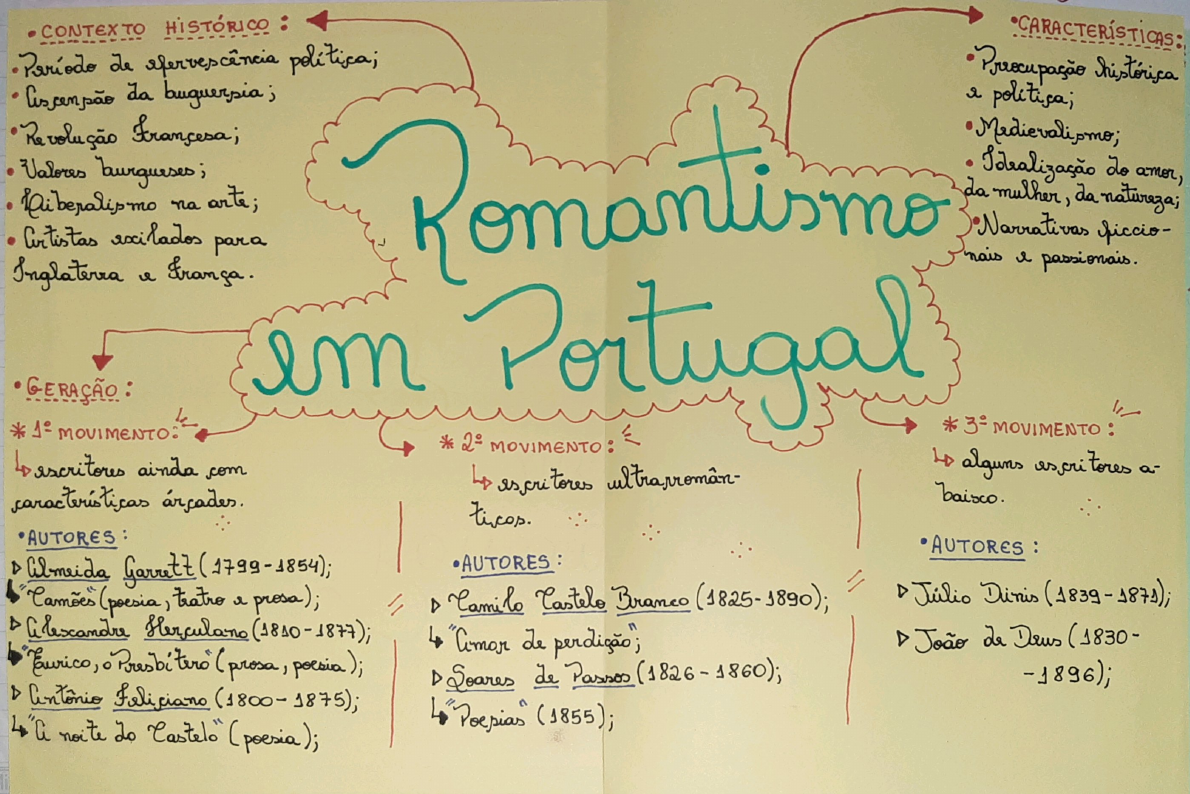 • CONTEXTO HISTÓRICO:
• Período de efervescência política;
• Ascensão da buguersia;
• Revolução Francesa;
• Valores burgueses;
• Liberalismo na arte;
• Artistas exilados para
Inglaterra e França.
Romantismo
em Portugal
• CARACTERÍSTICAS:
• Preocupação histórica
e política;
• Medievalismo;
• Idealização do amor,
da mulher, da natureza;
• Narrativas ficcio-
nais e passionais.
• GERAÇÃO:
* 1º MOVIMENTO:
↳ escritores ainda com
características árcades.
• AUTORES:
▷ Almeida Garrett (1799-1854);
↳ "Camões" (poesia, tratro e prosa);
▷ Alexandre Herculano (1810-1877);
↳ "Eurico, o Presbítero" (prosa, poesia);
▷ Antônio Feliciano (1800-1875);
↳ "A noite do Castelo" (poesia);
* 2º MOVIMENTO:
↳ escritores ultrarromân-
ticos.
• AUTORES:
▷ Camilo Castelo Branco (1825-1890);
↳ "Amor de perdição";
▷ Soares de Passos (1826-1860);
↳ "Poesias" (1855);
* 3º MOVIMENTO:
↳ alguns escritores a-
baixo.
• AUTORES:
▷ Júlio Dinis (1839-1871);
▷ João de Deus (1830-
-1896);